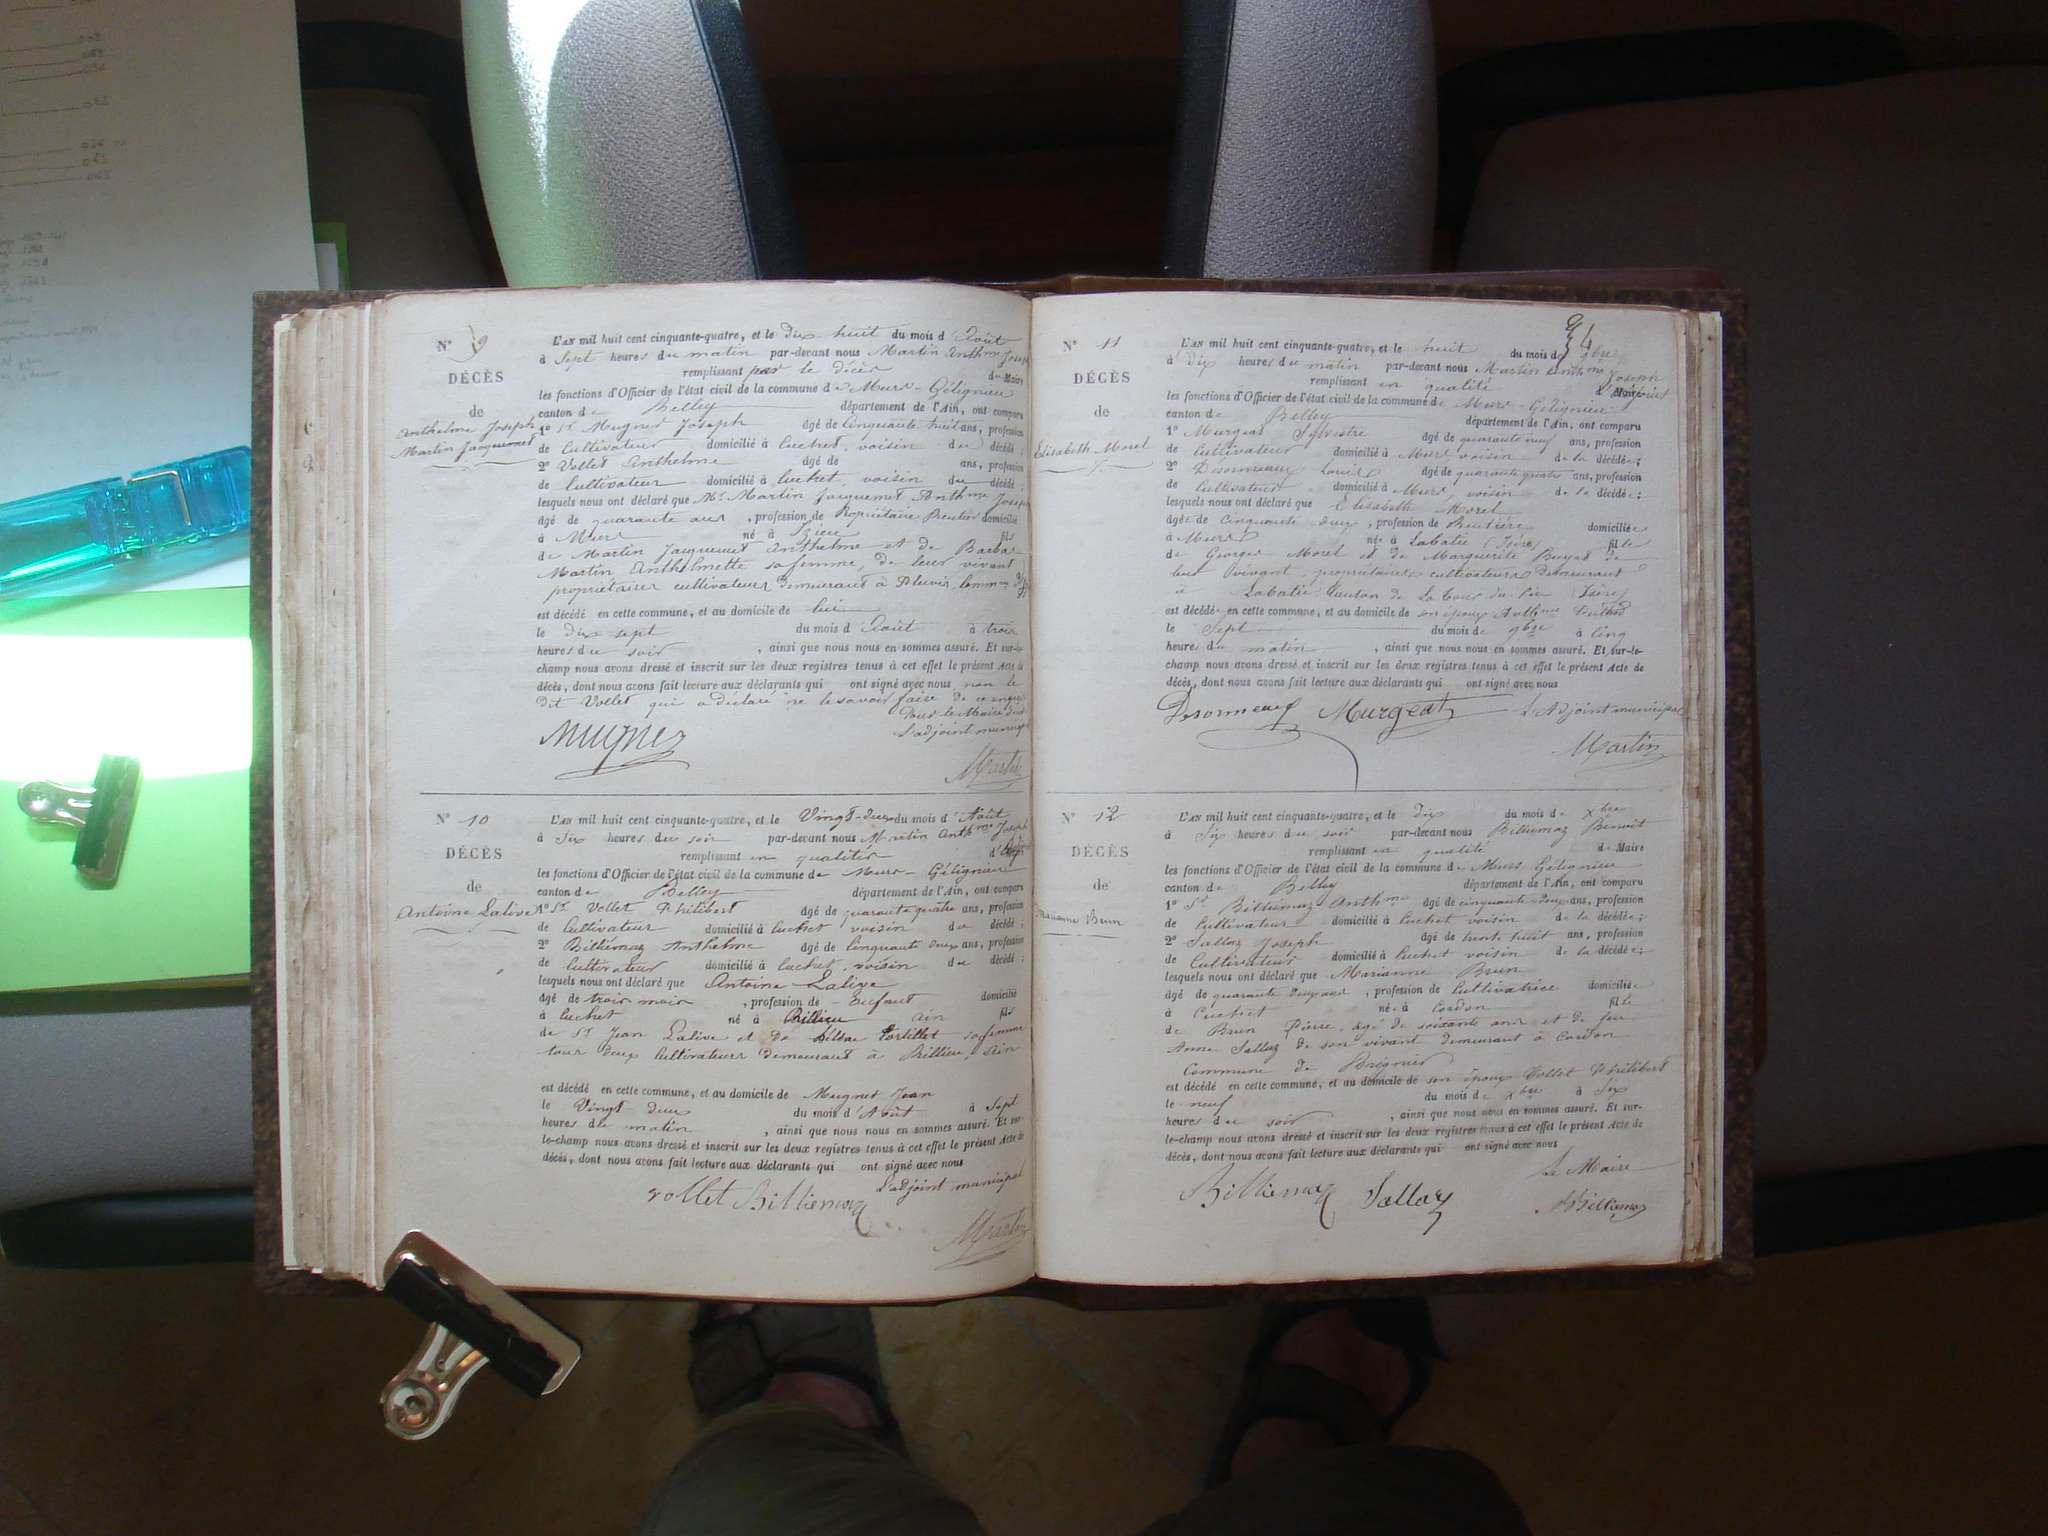 N° 9
DÉCÈS
de
Anthelme Joseph
Martin Jacquemet
L'an mil huit cent cinquante-quatre, et le dix huit du mois d'Août
à Sept heures du matin par-devant nous Martin Anthme Joseph
remplissant par le décès de Maire
les fonctions d'Officier de l'état civil de la commune de Murs-Gélignieu
canton de Belley département de l'Ain, ont comparu
1° Sr Mugnet Joseph âgé de Cinquante huit ans, profession
de Cultivateur domicilié à Cuchet, voisin du décédé ;
2° Vollet Anthelme âgé de ans, profession
de Cultivateur domicilié à Cuchet, voisin du décédé ;
lesquels nous ont déclaré que Mr Martin Jacquemet Anthme Joseph
âgé de quarante ans , profession de Propriétaire Rentier domicilié
à Murs né à fils
de Martin Jacquemet Anthelme et de
Martin Anthelmette sa femme, de leur vivant
propriétaires cultivateurs demeurant à
est décédé en cette commune, et au domicile de lui
le dix sept du mois d'Août à trois
heures du soir , ainsi que nous nous en sommes assuré. Et sur-le-
champ nous avons dressé et inscrit sur les deux registres tenus à cet effet le présent Acte de
décès, dont nous avons fait lecture aux déclarants qui ont signé avec nous, non le
dit Vollet qui a déclaré ne le savoir faire de ce requis
Pour le Maire
L'adjoint municipal
Mugnet
Martin
N° 10
DÉCÈS
de
Antoine Lalive
L'an mil huit cent cinquante-quatre, et le Vingt-deux du mois d'Août
à Six heures du soir par-devant nous Martin Anthme Joseph
remplissant en qualité d'Adjt
les fonctions d'Officier de l'état civil de la commune de Murs-Gélignieu
canton de Belley département de l'Ain, ont comparu
1° Sr Vollet Philibert âgé de quarante quatre ans, profession
de Cultivateur domicilié à Cuchet, voisin du décédé ;
2° Billiémaz Anthelme âgé de Cinquante deux ans, profession
de Cultivateur domicilié à Cuchet, voisin du décédé ;
lesquels nous ont déclaré que Antoine Lalive
âgé de trois mois , profession de Enfant domicilié
à Cuchet né à Rillieu ain fils
de Sr Jean Lalive et de sa femme
tous deux Cultivateurs demeurant à Rillieu Ain
est décédé en cette commune, et au domicile de Mugnet Jean
le Vingt deux du mois d'Août à Sept
heures de matin , ainsi que nous nous en sommes assuré. Et sur-
le-champ nous avons dressé et inscrit sur les deux registres tenus à cet effet le présent Acte de
décès, dont nous avons fait lecture aux déclarants qui ont signé avec nous
L'adjoint municipal
vollet Billiemaz
Martin
34
N° 11
DÉCÈS
de
Elisabeth Morel
L'an mil huit cent cinquante-quatre, et le huit du mois de 9bre
à Dix heures du matin par-devant nous Martin Anthme Joseph
remplissant en qualité d'adjoint
les fonctions d'Officier de l'état civil de la commune de Murs-Gélignieu
canton de Belley département de l'Ain, ont comparu
1° Murgeat Sylvestre âgé de quarante neuf ans, profession
de Cultivateur domicilié à Murs voisin de la décédée ;
2° Desormeaux Louis âgé de quarante quatre ans, profession
de Cultivateur domicilié à Murs, voisin de la décédée ;
lesquels nous ont déclaré que Elisabeth Morel
âgée de Cinquante deux , profession de Rentière domiciliée
à Murs née à Labatie (Isère) fille
de Georges Morel et de Marguerite de
leur vivant, propriétaires cultivateurs demeurant
à Labatie Canton de La Tour du Pin (Isère)
est décédée en cette commune, et au domicile de son époux Anthme
le Sept du mois de 9bre à Cinq
heures du matin , ainsi que nous nous en sommes assuré. Et sur-le-
champ nous avons dressé et inscrit sur les deux registres tenus à cet effet le présent Acte de
décès, dont nous avons fait lecture aux déclarants qui ont signé avec nous
Desormeaux Murgeat L'Adjoint municipal
Martin
N° 12
DÉCÈS
de
Marianne Brun
L'an mil huit cent cinquante-quatre, et le dix du mois de Xbre
à Six heures du soir par-devant nous Billiémaz Benoit
remplissant en qualité de Maire
les fonctions d'Officier de l'état civil de la commune de Murs Gélignieu
canton de Belley département de l'Ain, ont comparu
1° Sr Billiémaz Anthme âgé de cinquante deux ans, profession
de Cultivateur domicilié à Cuchet voisin de la décédée ;
2° Sallaz Joseph âgé de trente huit ans, profession
de Cultivateur domicilié à Cuchet voisin de la décédée ;
lesquels nous ont déclaré que Marianne Brun
âgé de quarante deux ans , profession de Cultivatrice domiciliée
à Cuchet née à Cordon fille
de Brun Pierre, âgé de soixante ans et de feu
Anne Sallaz de son vivant demeurant à Cordon
Commune de Brégnier
est décédé en cette commune, et au domicile de son époux Vollet Philibert
le neuf du mois de Xbre à Six
heures du soir , ainsi que nous nous en sommes assuré. Et sur-
le-champ nous avons dressé et inscrit sur les deux registres tenus à cet effet le présent Acte de
décès, dont nous avons fait lecture aux déclarants qui ont signé avec nous
Le Maire
Billiemaz Sallaz Billiemaz